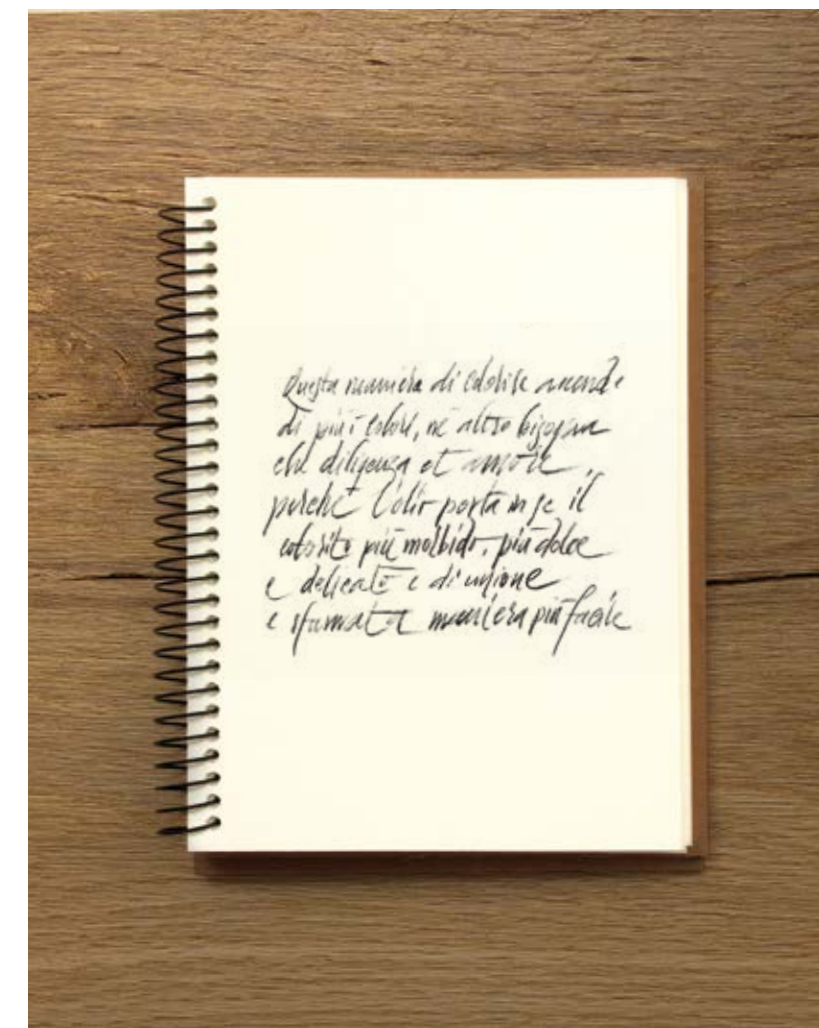 Questa maniera di colorire accende
di più i colori, né altro bisogna
che diligenza et amore,
perché l'olio porta in se il
colorito più morbido, più dolce
e delicato e di unione
e sfumata maniera più facile